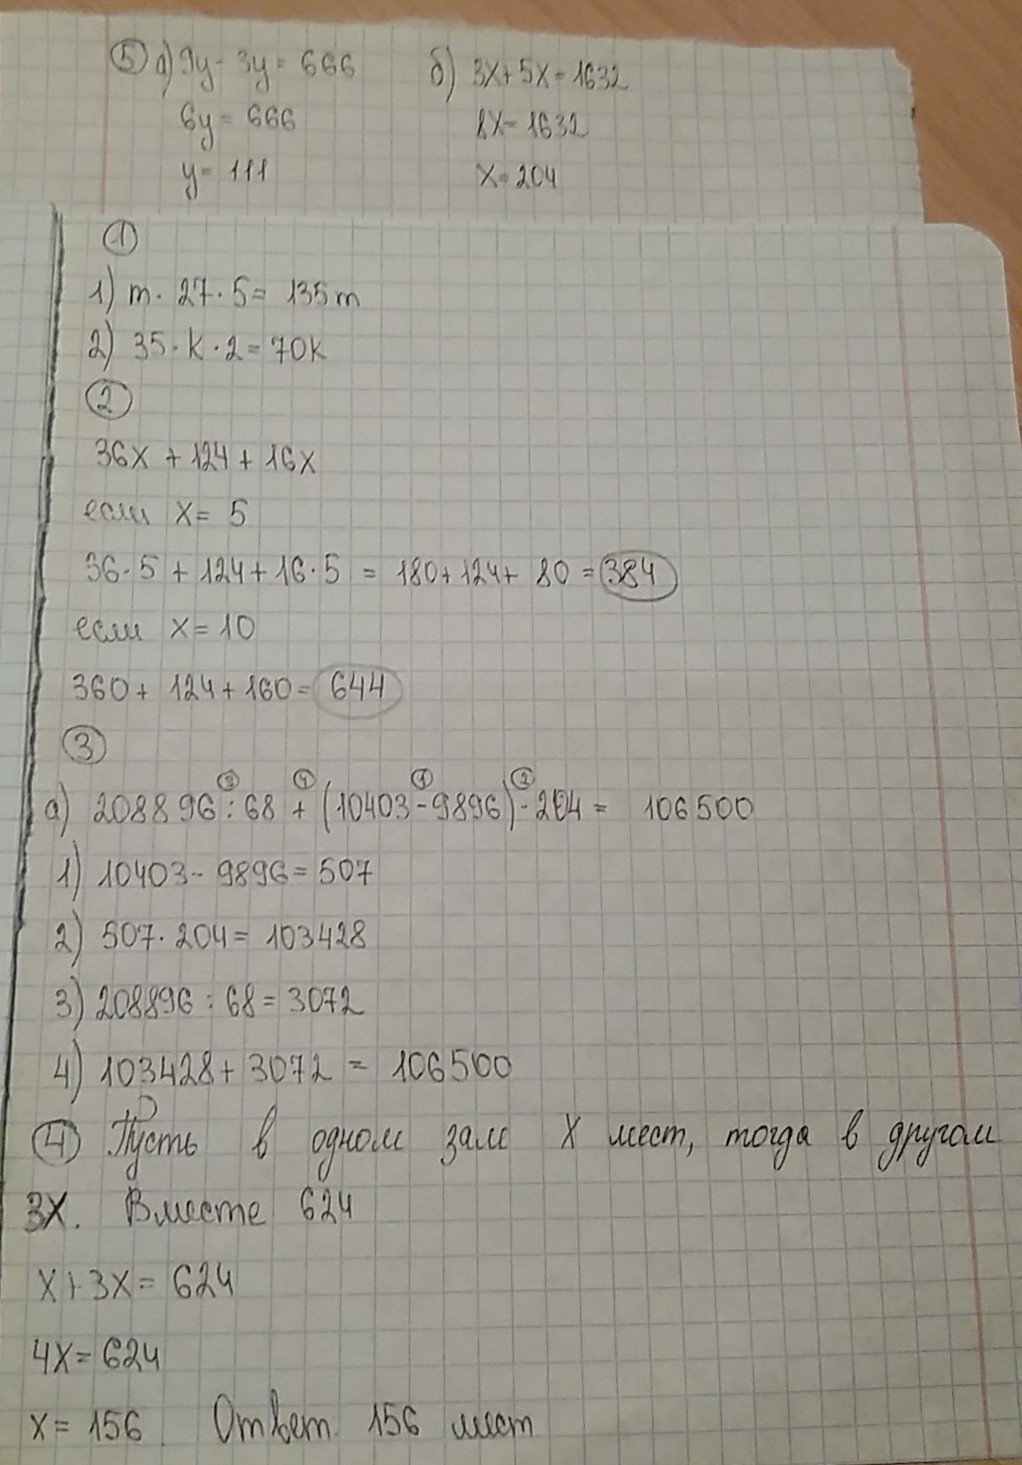 ⑤ а) 9y - 3y = 666 б) 3x + 5x = 1632
6y = 666 8x = 1632
y = 111 x = 204
①
1) m · 27 · 5 = 135m
2) 35 · k · 2 = 70k
②
36x + 124 + 16x
если x = 5
36 · 5 + 124 + 16 · 5 = 180 + 124 + 80 = 384
если x = 10
360 + 124 + 160 = 644
③
③ ④ ① ②
а) 208896 : 68 + (10403 - 9896) · 204 = 106500
1) 10403 - 9896 = 507
2) 507 · 204 = 103428
3) 208896 : 68 = 3072
4) 103428 + 3072 = 106500
④ Пусть в одном зале x мест, тогда в другом
3x. Вместе 624
x + 3x = 624
4x = 624
x = 156. Ответ. 156 мест